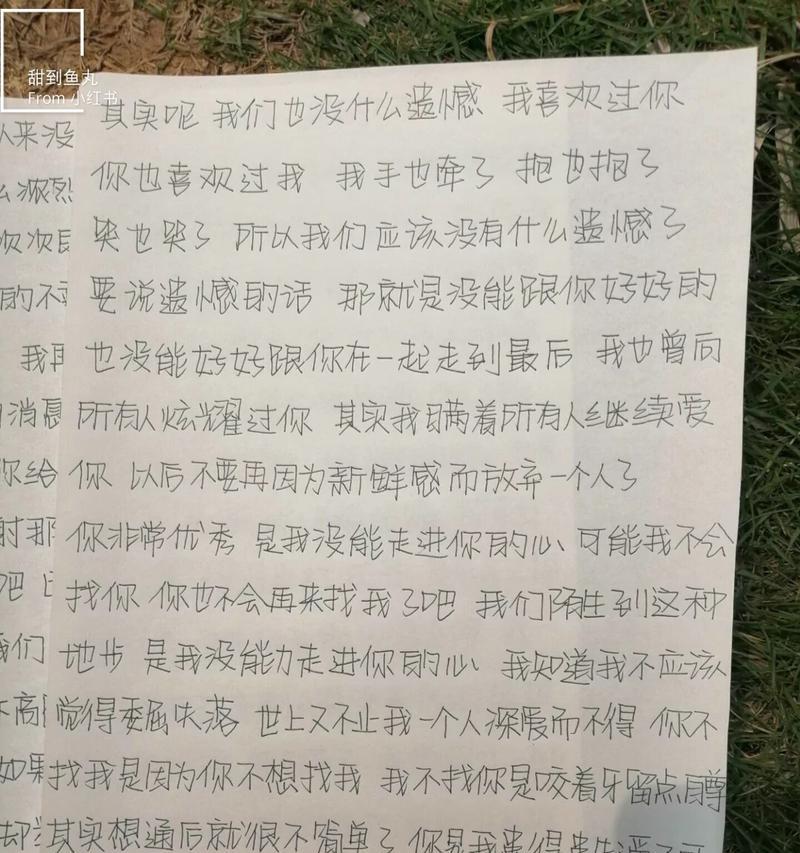 甜到鱼丸
From 小红书
从来没
么浓烈
次次
的不
我
消息
你给
射那
吧
我们
不高
如果
却
其实呢 我们也没什么遗憾 我喜欢过你
你也喜欢过我 我手也牵了 抱也抱了
哭也哭了 所以我们应该没有什么遗憾了
要说遗憾的话 那就是没能跟你好好的
也没能好好跟你在一起走到最后 我也曾向
所有人炫耀过你 其实我瞒着所有人继续爱
你 以后不要再因为新鲜感而放弃一个人了
你非常优秀 是我没能走进你的心 可能我不会
找你 你也不会再来找我了吧 我们陌生到这种
地步 是我没能力走进你的心 我知道我不应该
觉得委屈失落 世上又不止我一个人深爱而不得 你不
找我是因为你不想找我 我不找你是咬着牙留点自尊
其实想通后就很不简单了 你是我